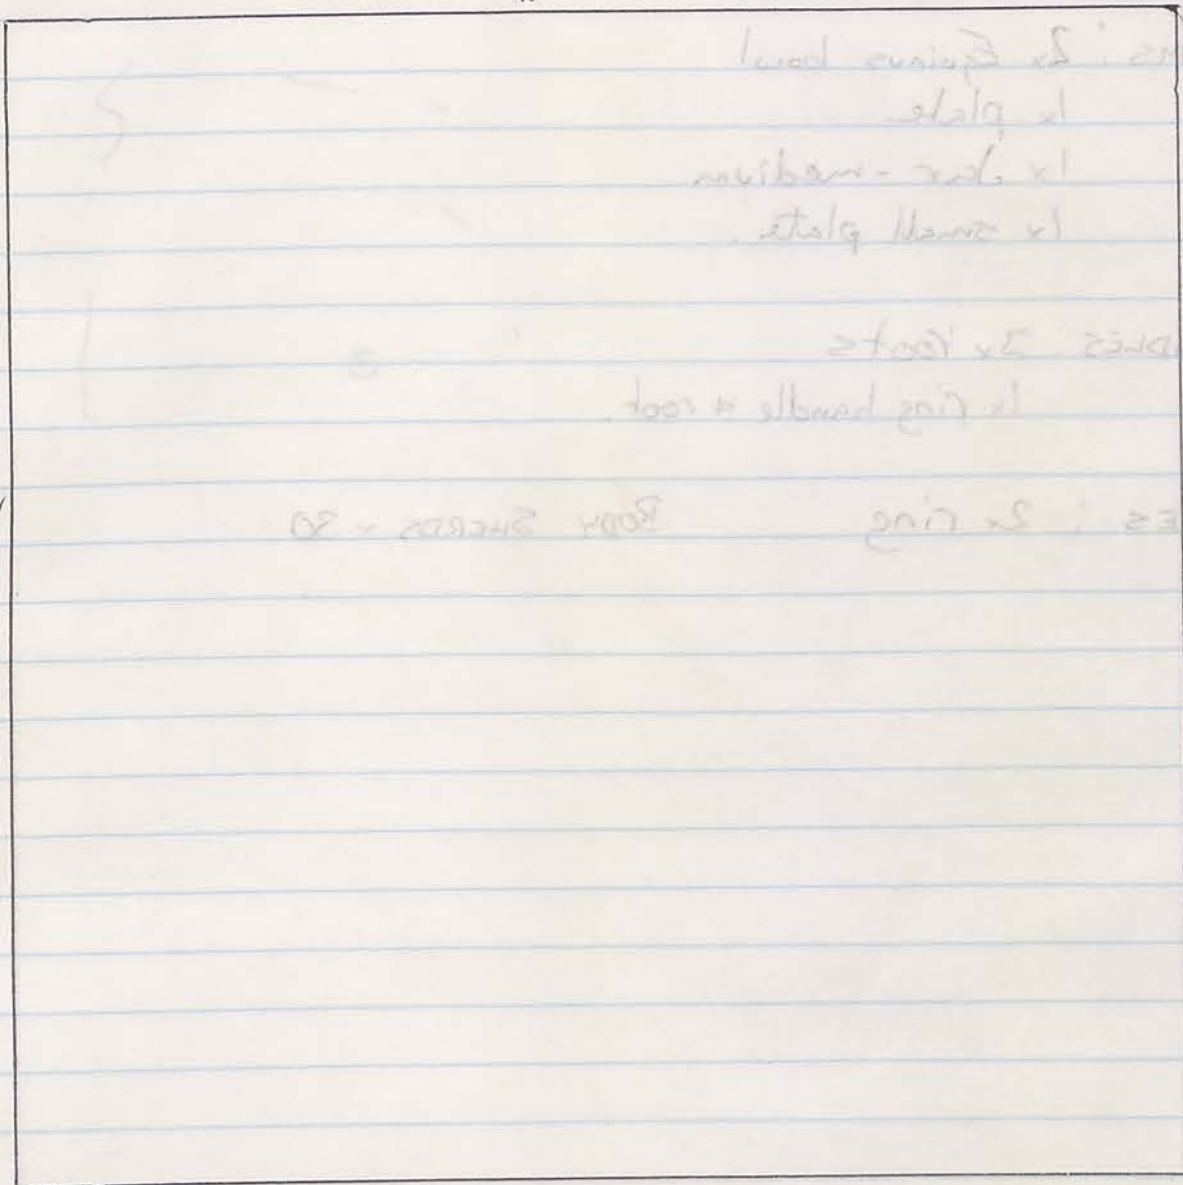 MS : 2x Equinus bowl
1x plate
1x Jar - medium
1x small plate.
DLES 3x roots
1x ring handle & root.
ES : 2x ring BODY SHERDS x 30